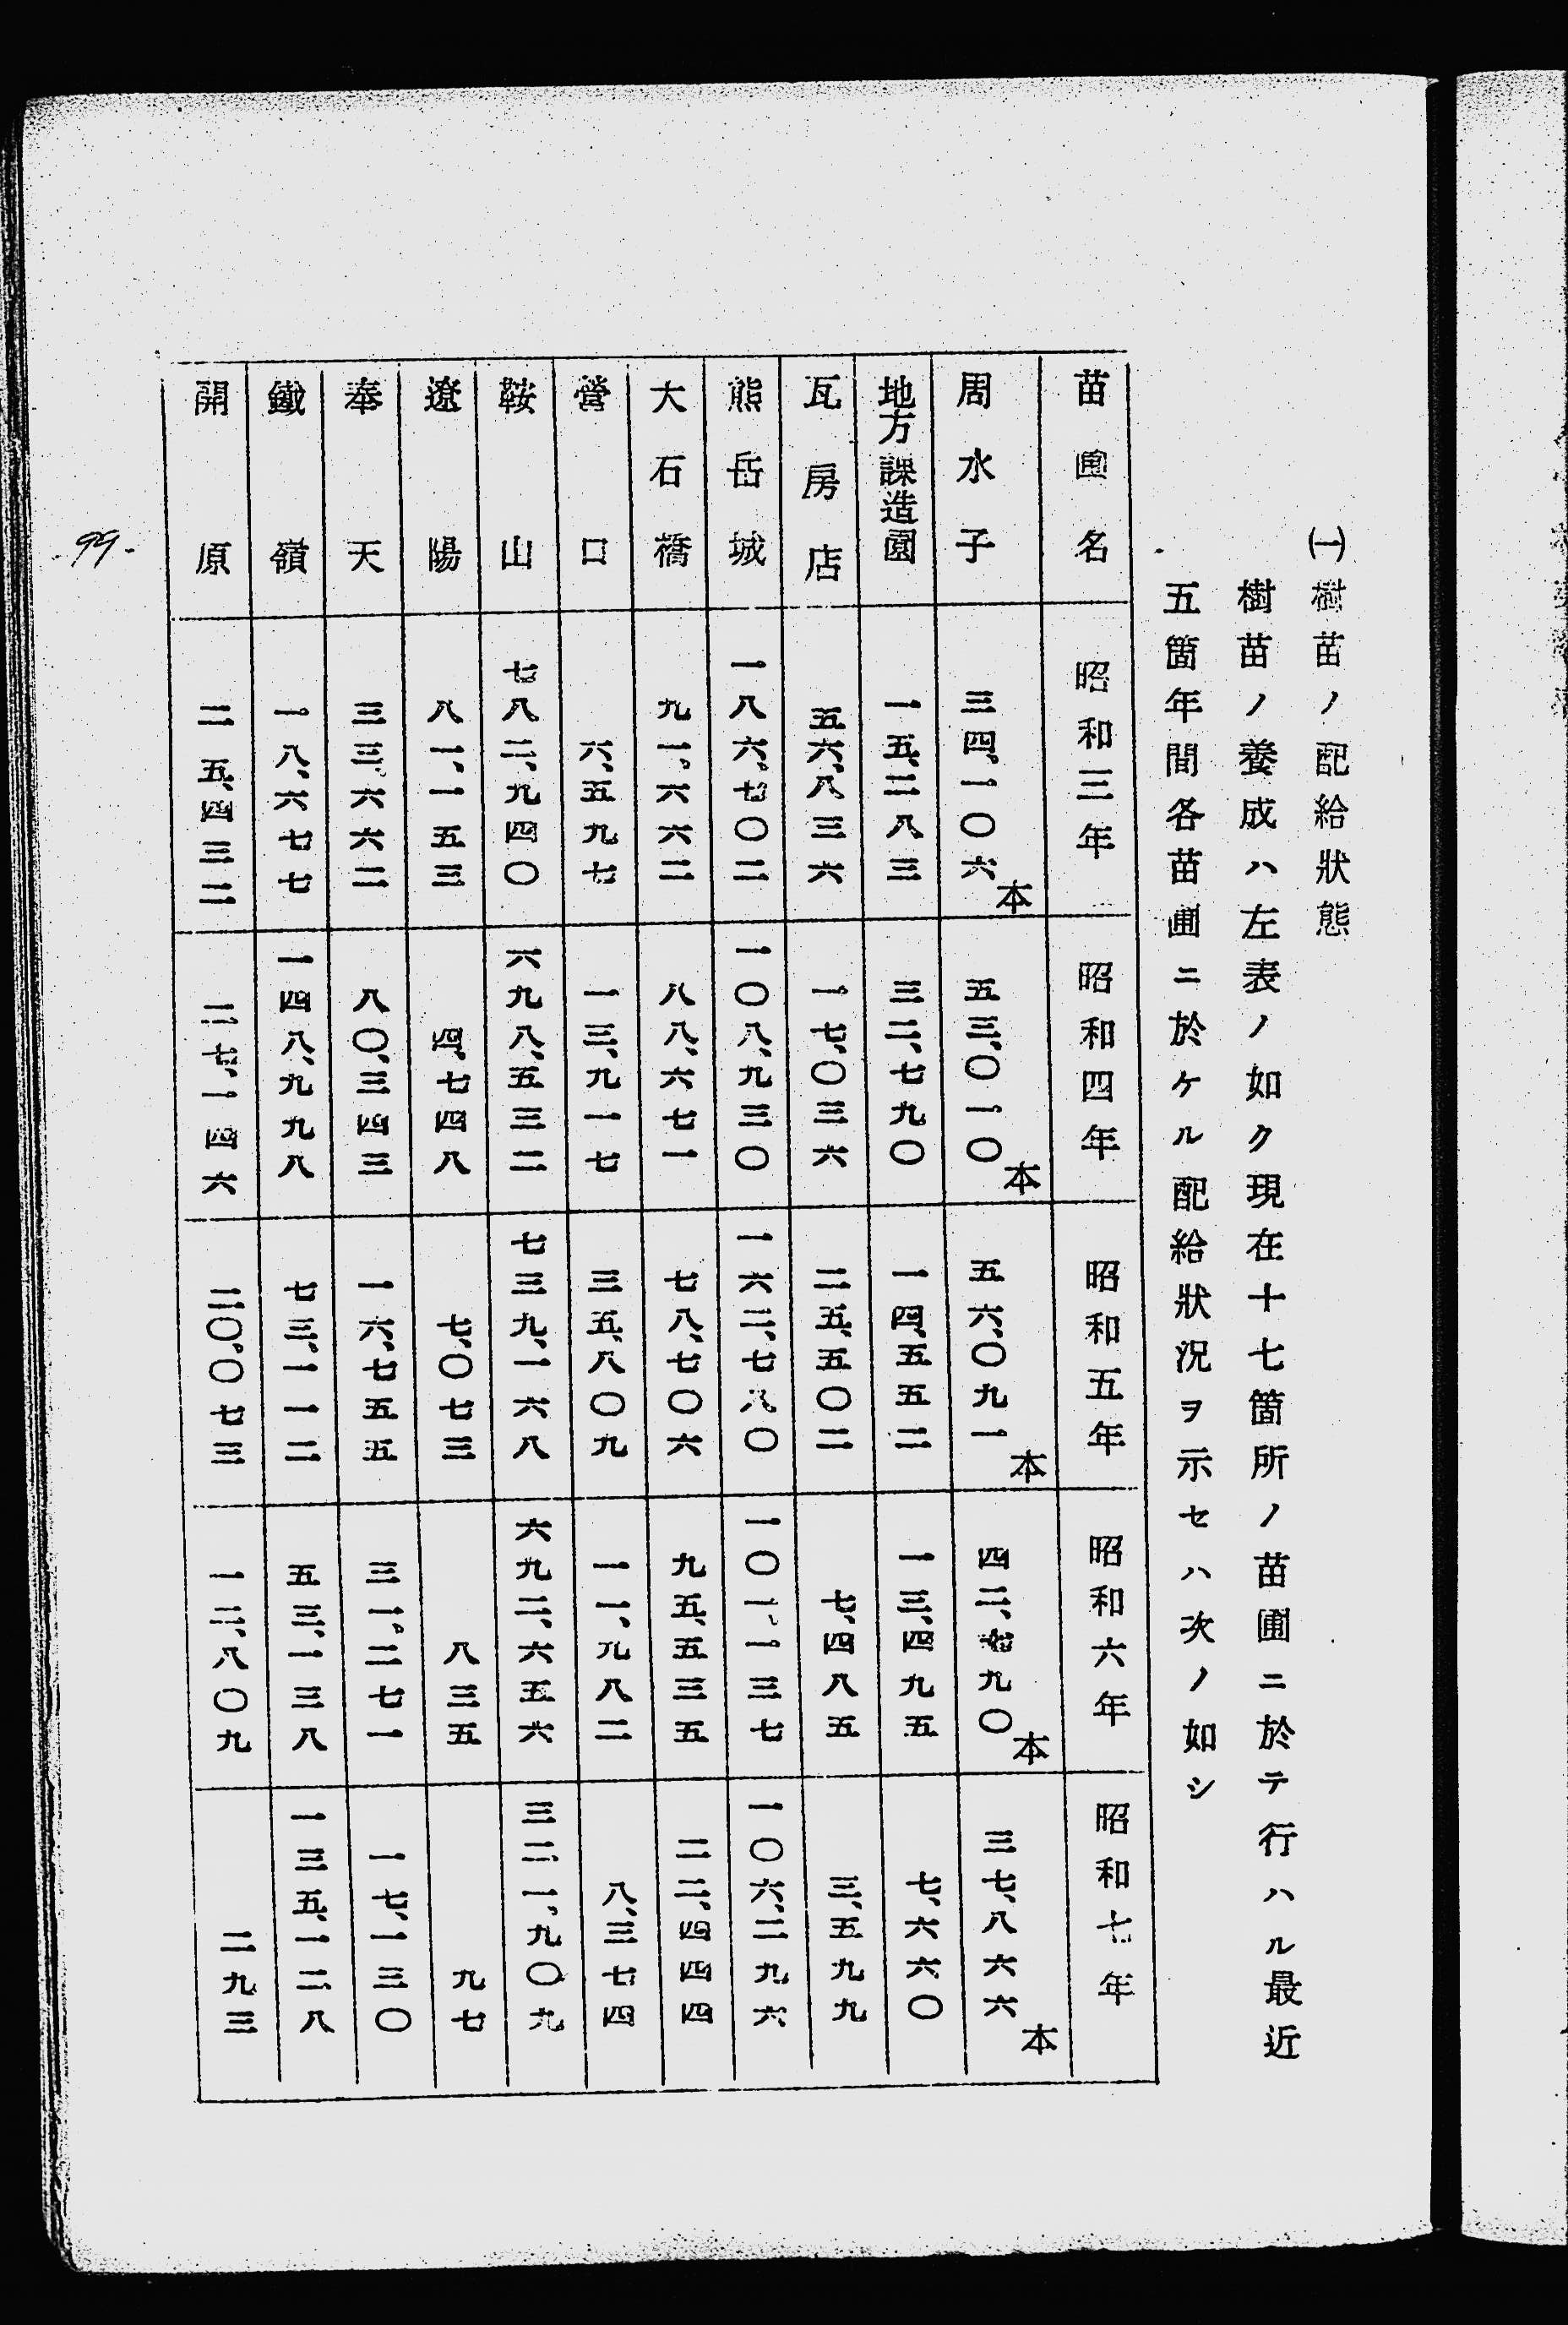 ㈠樹苗ノ配給狀態
樹苗ノ養成ハ左表ノ如ク現在十七箇所ノ苗圃ニ於テ行ハル最近
五箇年間各苗圃ニ於ケル配給狀況ヲ示セハ次ノ如シ
苗圃名 昭和三年 昭和四年 昭和五年 昭和六年 昭和七年
本 本 本 本 本
周水子 三四、一〇六 五三、〇一〇 五六、〇九一 四二、九〇 三七、八六六
地方課造園 一五、二八三 三二、七九〇 一四、五五二 一三、四九五 七、六六〇
瓦房店 五六、八三六 一七、〇三六 二五、五〇二 七、四八五 三、五九九
熊岳城 一八六、七〇二 一〇八、九三〇 一六二、七八〇 一〇一、一三七 一〇六、二九六
大石橋 九一、六六二 八八、六七一 七八、七〇六 九五、五三五 二二、四四四
營口 六、五九七 一三、九一七 三五、八〇九 一一、九八二 八、三七四
鞍山 七八二、九四〇 六九八、五三二 七三九、一六八 六九二、六五六 三二一、九〇九
遼陽 八一、一五三 四、七四八 七、〇七三 八三五 九七
奉天 三三、六六二 八〇、三四三 一六、七五五 三一、二七一 一七、一三〇
鐵嶺 一八、六七七 一四八、九九八 七三、一一二 五三、一三八 一三五、一二八
開原 二五、四三二 二七、一四六 二〇、〇七三 一二、八〇九 二九三
-99-